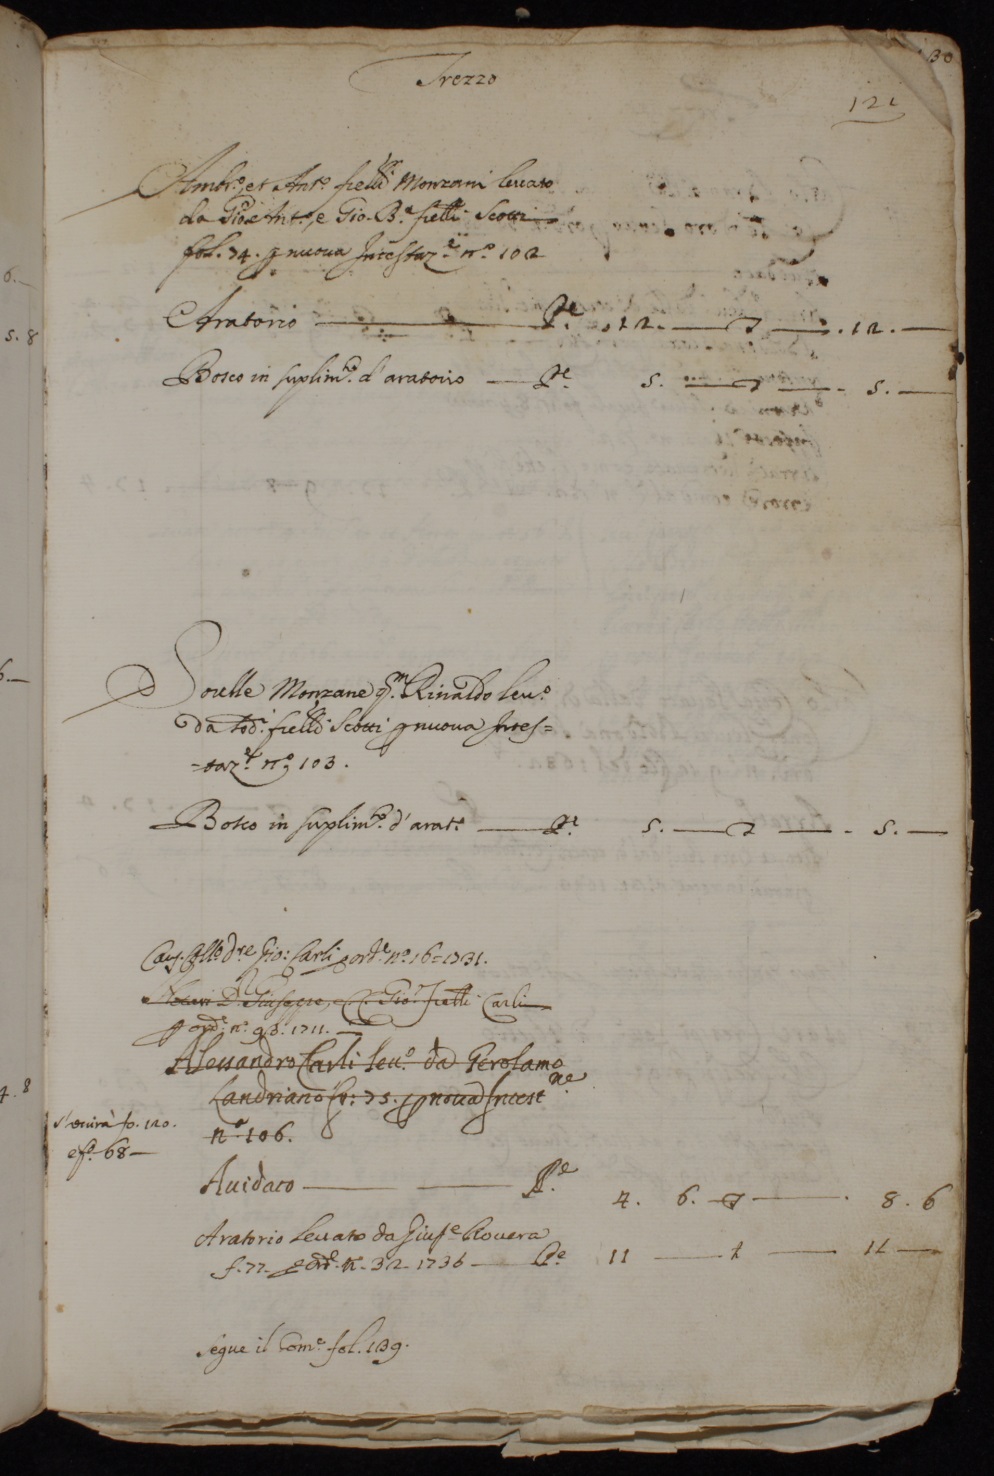 Trezzo
121
Ambr.o et Ant.o frelli Monzani levato
da Gio: Ant.o, e Gio. B.a frelli Scotti
fol. 74. p nuova Intestaz.e n.o 102
Aratorio — P.e 12. — 7 — 12. —
Bosco in suplim.to d'aratorio — P.e 5. — 7 — 5. —
Sorelle Monzane q.m Rinaldo lev.o
da sod.i frelli Scotti p nuova Intes=
=taz.e n.o 103.
Bosco in suplim.to d'arat.o — P.e 5. — 7 — 5. —
Gio: Carli p ord.e n.o 16 = 1731.
D. Giuseppe, e Gio: fratelli Carli
p ord.e n.o 98. 1711.
Alessandro Carli lev.o da Gerolamo
Landriano fo: 75. p nova Intest.ne
n.o 106.
fo. 120.
e fo. 68 —
Avidato — P.e 4. 6. — 7 — 8. 6
Aratorio Levato da Gius.e Rovera
f. 77. p ord.e n. 32 1736 — P.e 11 — 1 — 11 —
Segue il Com.e fol. 139.